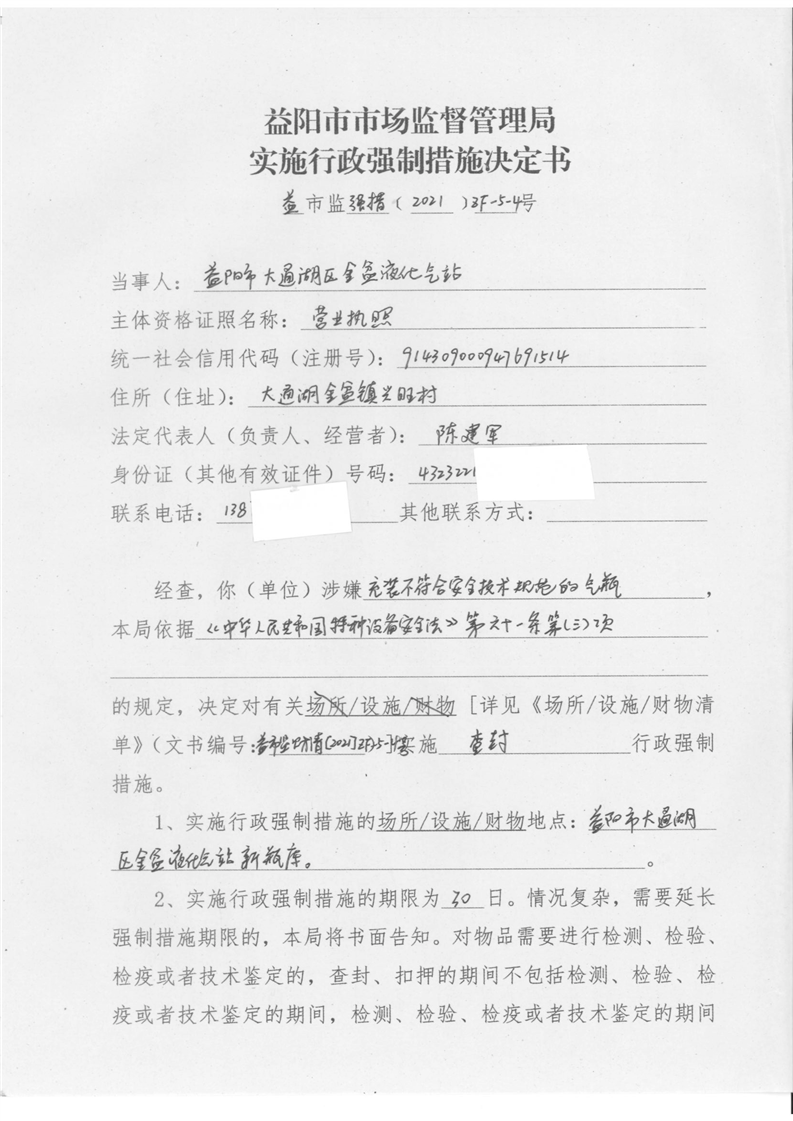 益阳市市场监督管理局
实施行政强制措施决定书
益市监强措(2021)ZF-5-4号
当事人:益阳市大通湖区金盆液化气站
主体资格证照名称:营业执照
统一社会信用代码(注册号):914309000947691514
住所(住址):大通湖金盆镇兴旺村
法定代表人(负责人、经营者):陈建军
身份证(其他有效证件)号码:4323221
联系电话:138 其他联系方式:
经查,你(单位)涉嫌充装不符合安全技术规范的气瓶,
本局依据《中华人民共和国特种设备安全法》第六十一条第(三)项
的规定,决定对有关场所/设施/财物[详见《场所/设施/财物清
单》(文书编号:益市监财清[2021]ZF25-1号实施 查封 行政强制
措施。
1、实施行政强制措施的场所/设施/财物地点:益阳市大通湖
区金盆液化气站新瓶库。。
2、实施行政强制措施的期限为30日。情况复杂,需要延长
强制措施期限的,本局将书面告知。对物品需要进行检测、检验、
检疫或者技术鉴定的,查封、扣押的期间不包括检测、检验、检
疫或者技术鉴定的期间,检测、检验、检疫或者技术鉴定的期间